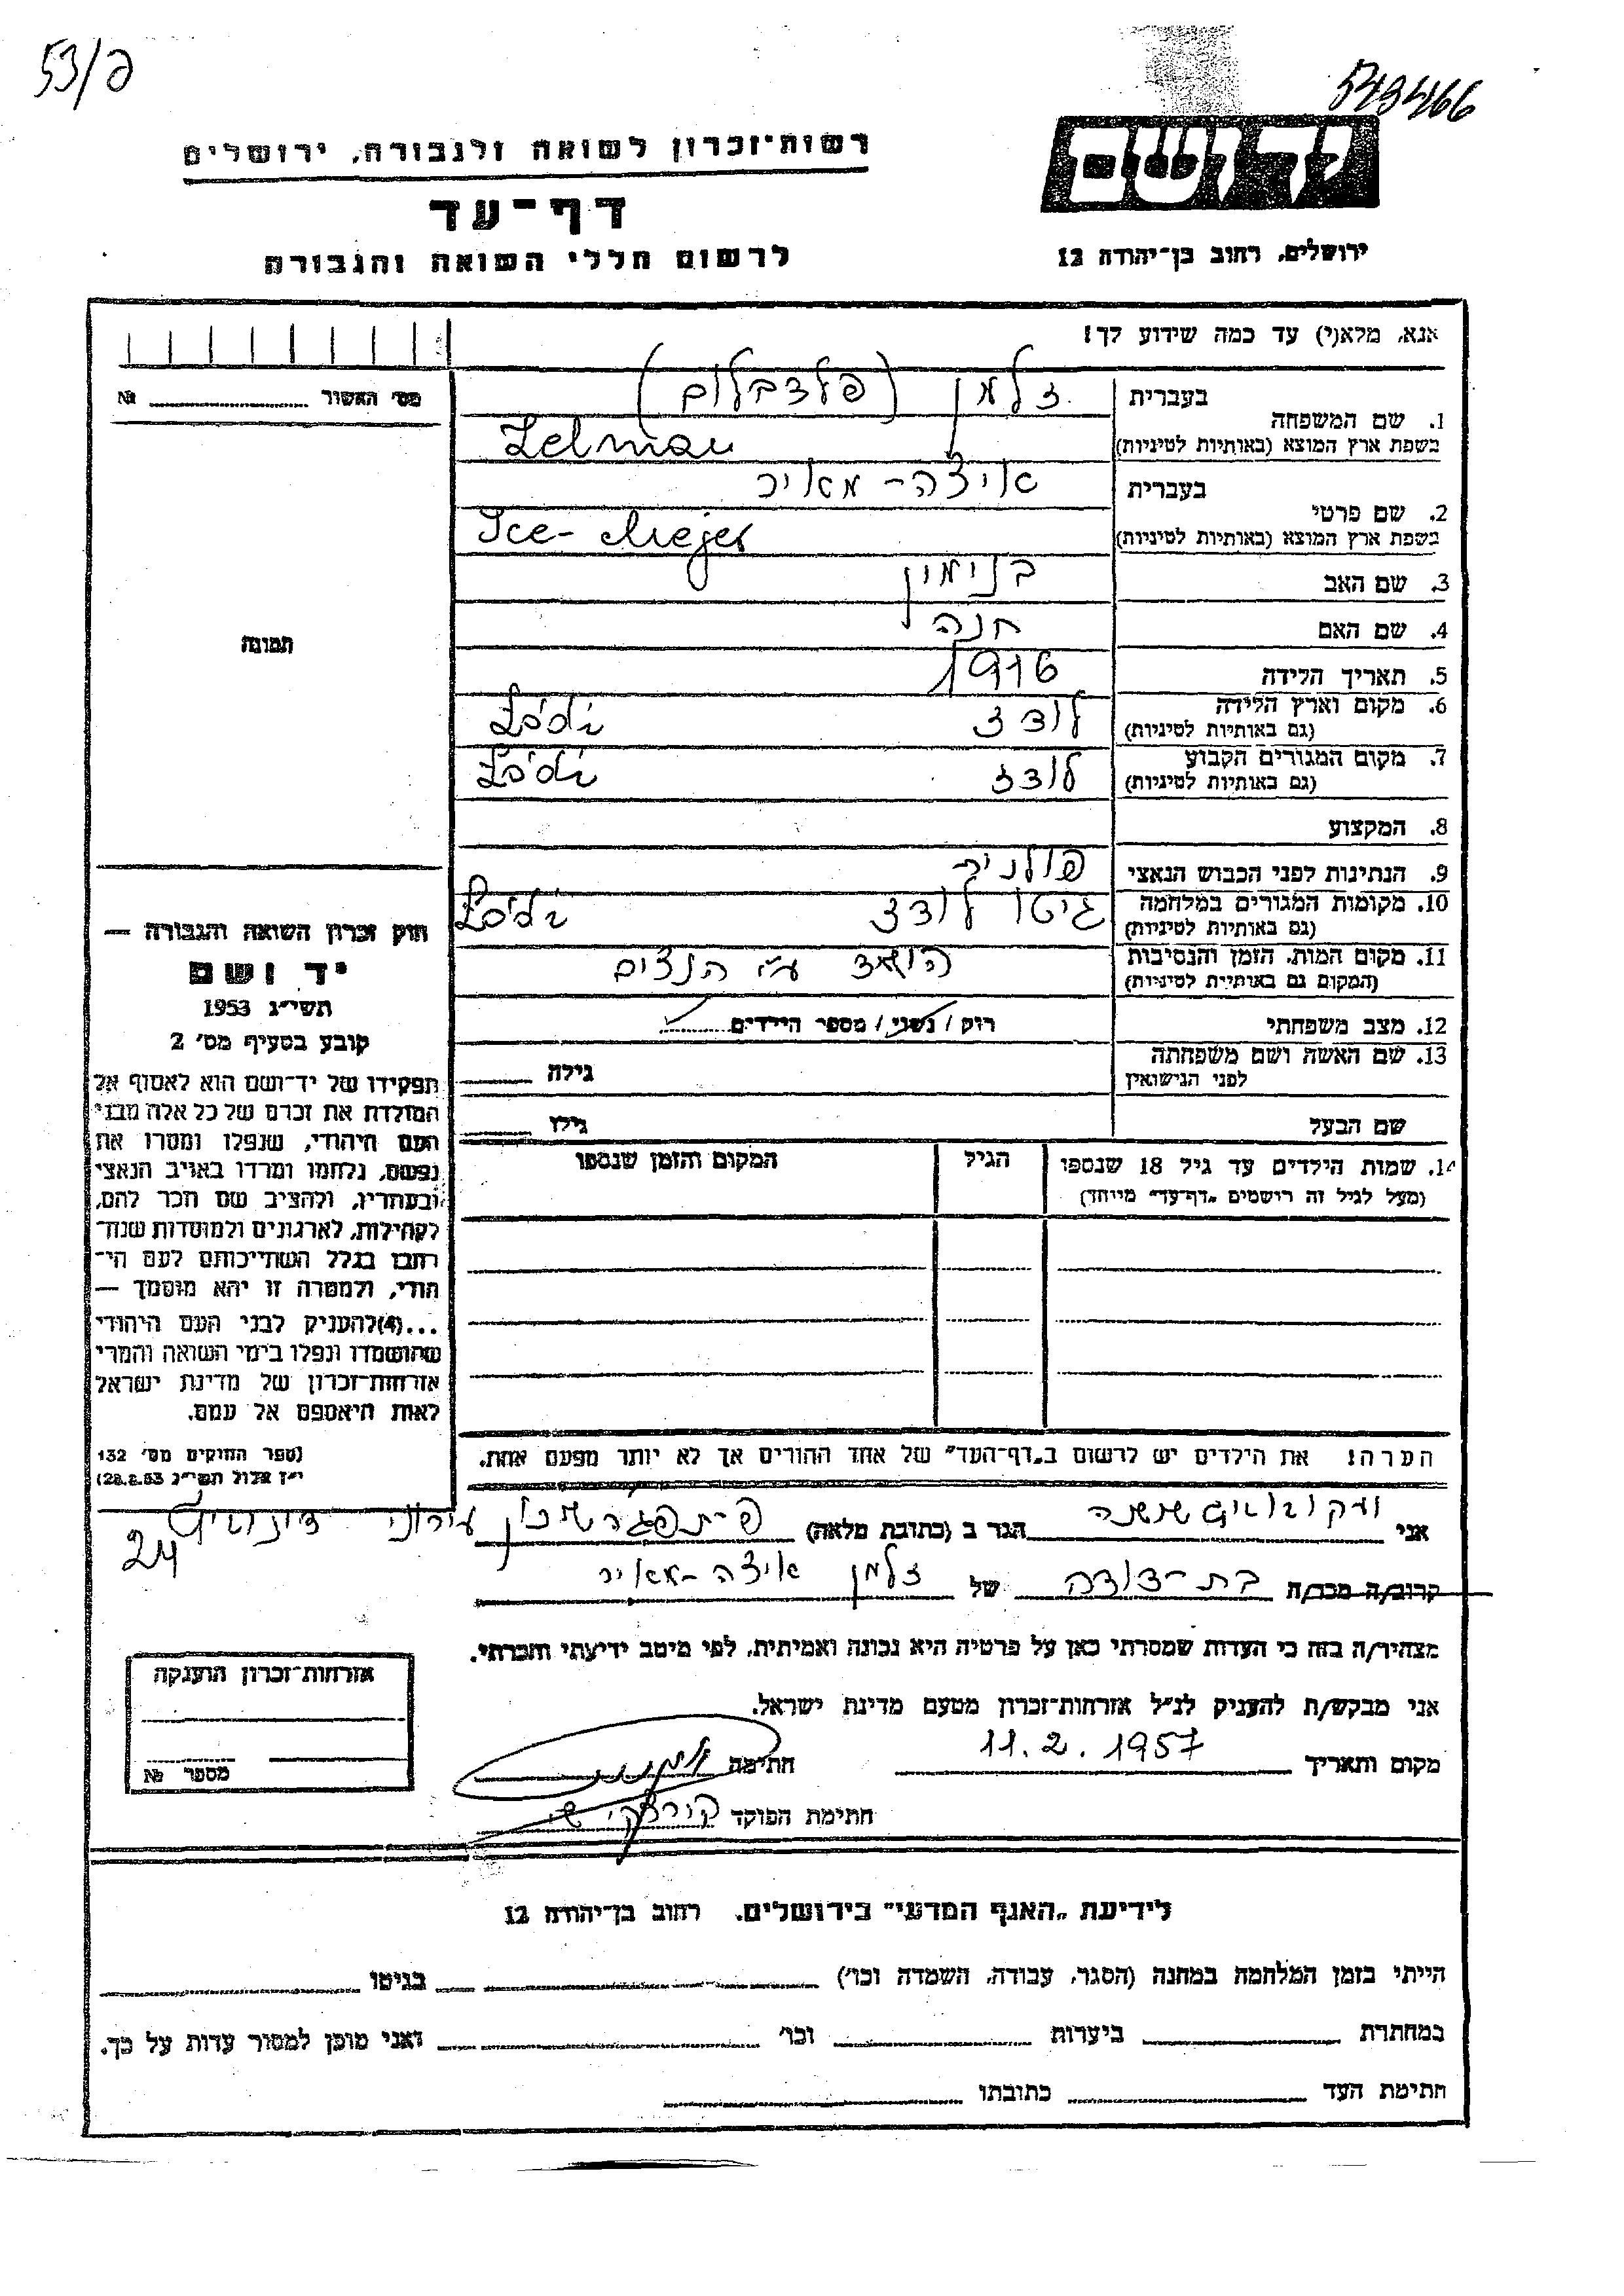 53/פ
543466
רשות־זכרון לשואה ולגבורה, ירושלים
יד ושם
דף־עד
לרשום חללי השואה והגבורה
ירושלים, רחוב בן־יהודה 12
אנא, מלא(י) עד כמה שידוע לך!
מס׳ האשור № 
1. שם המשפחה
בעברית
זלמן (פלדבלום)
בשפת ארץ המוצא (באותיות לטיניות)
Zelman
2. שם פרטי
בעברית
איצה-מאיר
בשפת ארץ המוצא (באותיות לטיניות)
Ice-Mejer
3. שם האב
בנימין
4. שם האם
חנה
5. תאריך הלידה
1916
6. מקום וארץ הלידה
(גם באותיות לטיניות)
לודז Łódź
7. מקום המגורים הקבוע
(גם באותיות לטיניות)
לודז Łódź
8. המקצוע
9. הנתינות לפני הכבוש הנאצי
פולנית
10. מקומות המגורים במלחמה
(גם באותיות לטיניות)
גיטו לודז Łódź
11. מקום המות, הזמן והנסיבות
(המקום גם באותיות לטיניות)
הושמד ע״י הנצים
12. מצב משפחתי
רוק / נשוי / מספר הילדים
13. שם האשה ושם משפחתה
לפני הנישואין
גילה
שם הבעל
גילו
14. שמות הילדים עד גיל 18 שנספו
(מעל לגיל זה רושמים „דף־עד״ מיוחד)
הגיל
המקום והזמן שנספו
תמונה
חוק זכרון השואה והגבורה —
יד ושם
תשי״ג 1953
קובע בסעיף מס׳ 2
תפקידו של יד־ושם הוא לאסוף אל
המולדת את זכרם של כל אלה מבני
העם היהודי, שנפלו ומסרו את
נפשם, נלחמו ומרדו באויב הנאצי
ובעוזריו, ולהציב שם וזכר להם,
לקהילות, לארגונים ולמוסדות שנח־
רבו בגלל השתייכותם לעם הי־
הודי, ולמטרה זו יהא מוסמך —
...(4) להעניק לבני העם היהודי
שהושמדו ונפלו בימי השואה והמרי
אזרחות־זכרון של מדינת ישראל
לאות היאספם אל עמם.
(ספר החוקים מס׳ 132
י״ז אלול תשי״ג 28.8.53)
הערה! את הילדים יש לרשום ב„דף־העד״ של אחד ההורים אך לא יותר מפעם אחת.
אני שושנה הגר ב (כתובת מלאה) שכון עירוני
24
קרוב/ה מכר/ה בת-דודה של זלמן איצה-מאיר
מצהיר/ה בזה כי העדות שמסרתי כאן על פרטיה היא נכונה ואמיתית, לפי מיטב ידיעתי והכרתי.
אני מבקש/ת להעניק לנ״ל אזרחות־זכרון מטעם מדינת ישראל.
מקום ותאריך 11.2.1957 חתימה
חתימת הפוקד
אזרחות־זכרון הוענקה
מספר №
לידיעת „האגף המדעי״ בירושלים. רחוב בן־יהודה 12
הייתי בזמן המלחמה במחנה (הסגר, עבודה, השמדה וכו׳) בגיטו
במחתרת ביערות וכו׳ ואני מוכן למסור עדות על כך.
חתימת העד כתובתו